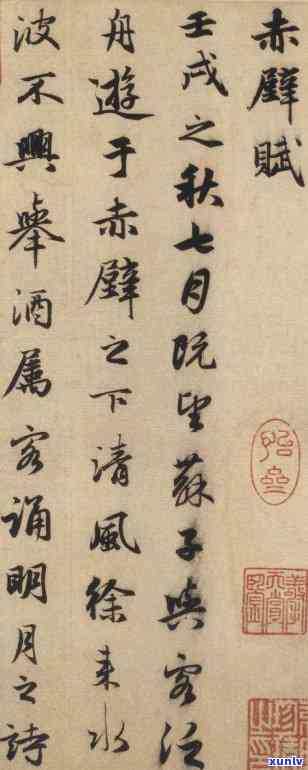 赤壁賦
壬戌之秋七月既望蘇子與客泛
舟遊于赤壁之下清風徐来水
波不興舉酒属客誦明月之詩
xunlv